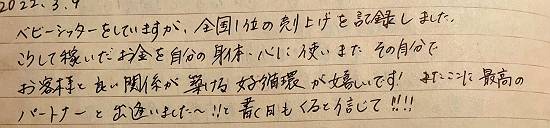 2022.3.9
ベビーシッターをしていますが、全国1位の売り上げを記録しました。
こうして稼いだお金を自分の身体・心に使いまた その自分で
お客様と良い関係が築ける好循環が嬉しいです! またここに最高の
パートナーと出逢いました〜!!と書く日もくると信じて!!!!